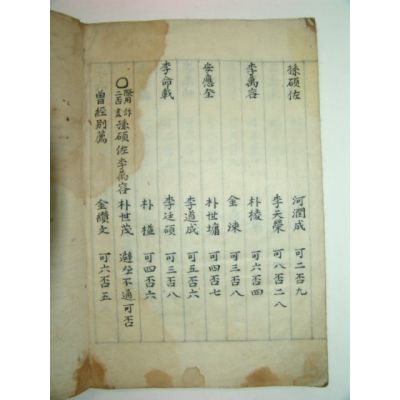 孫碩佐 河潤成 可二否九
李天榮 可八否二八
李萬容 朴稜 可六否四
金涑 可三否八
安應全 朴世墉 可四否七
李道成 可五否六
李命載 李廷碩 可三否八
朴權 可四否六
○ 孫碩佐李萬容 朴世茂 不通可否
曾經別薦 金纘文 可六否五